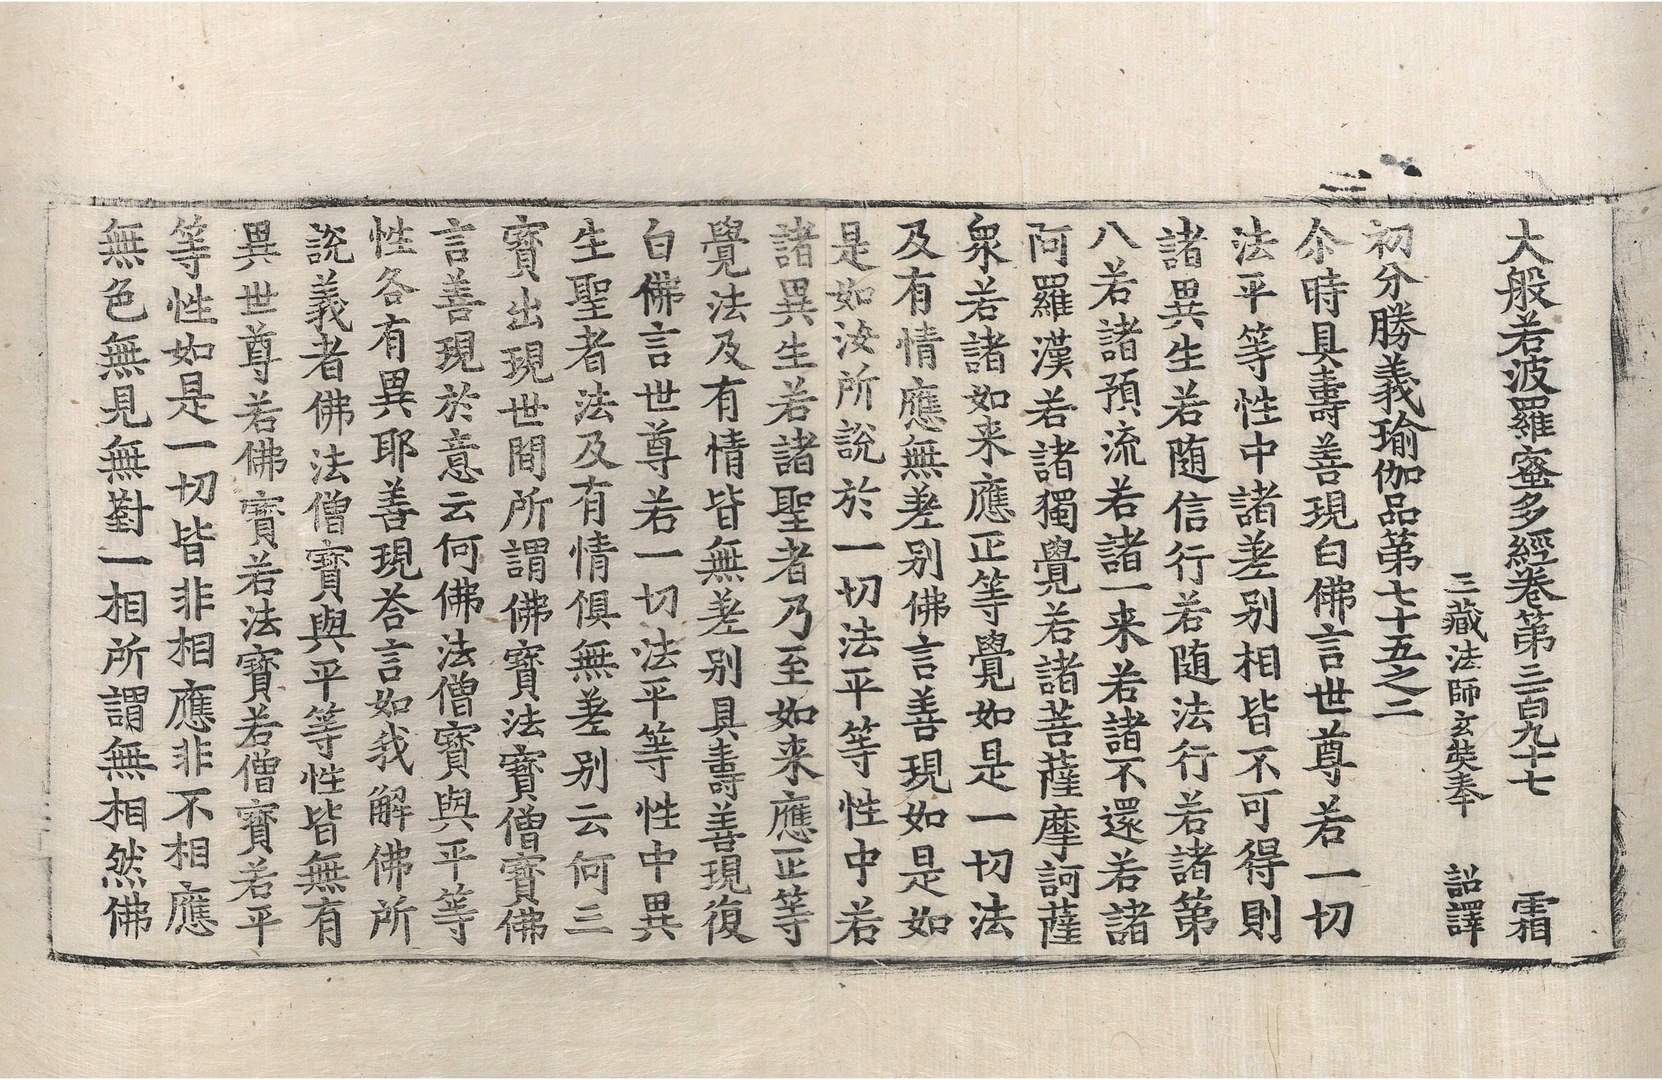 大般若波羅蜜多經卷第三百九十七 霜
三藏法師玄奘奉 詔譯
初分勝義瑜伽品第七十五之二
尒時具壽善現白佛言世尊若一切
法平等性中諸差别相皆不可得則
諸異生若随信行若随法行若諸第
八若諸預流若諸一来若諸不還若諸
阿羅漢若諸獨覺若諸菩薩摩訶薩
衆若諸如来應正等覺如是一切法
及有情應無差别佛言善現如是如
是如汝所說於一切法平等性中若
諸異生若諸聖者乃至如来應正等
覺法及有情皆無差别具壽善現復
白佛言世尊若一切法平等性中異
生聖者法及有情俱無差别云何三
寳出現世間所謂佛寳法寳僧寳佛
言善現於意云何佛法僧寳與平等
性各有異耶善現荅言如我解佛所
說義者佛法僧寳與平等性皆無有
異世尊若佛寳若法寳若僧寳若平
等性如是一切皆非相應非不相應
無色無見無對一相所謂無相然佛